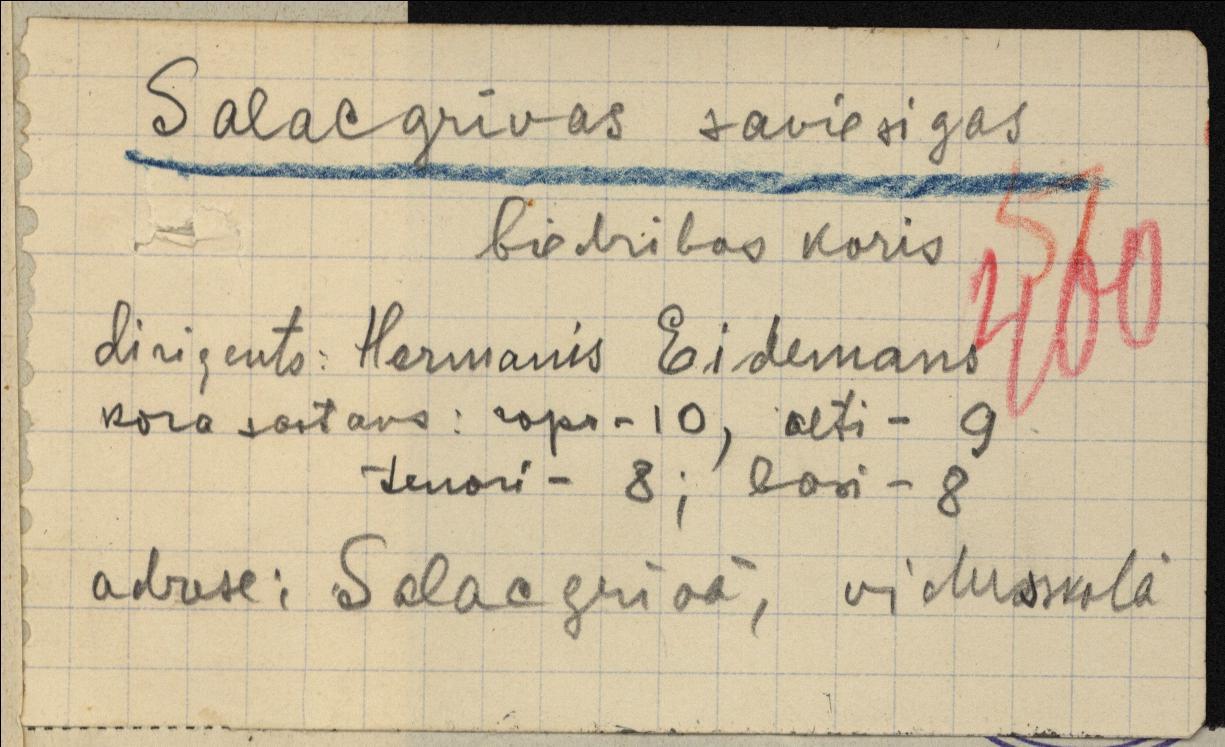 Salacgrīvas saviesigas
biedribas koris
dirigents: Hermanis Eidemans
kora sastavs: sopr-10, alti- 9
tenori- 8; basi-8
adrese: Salacgrīvā, vidusskolā